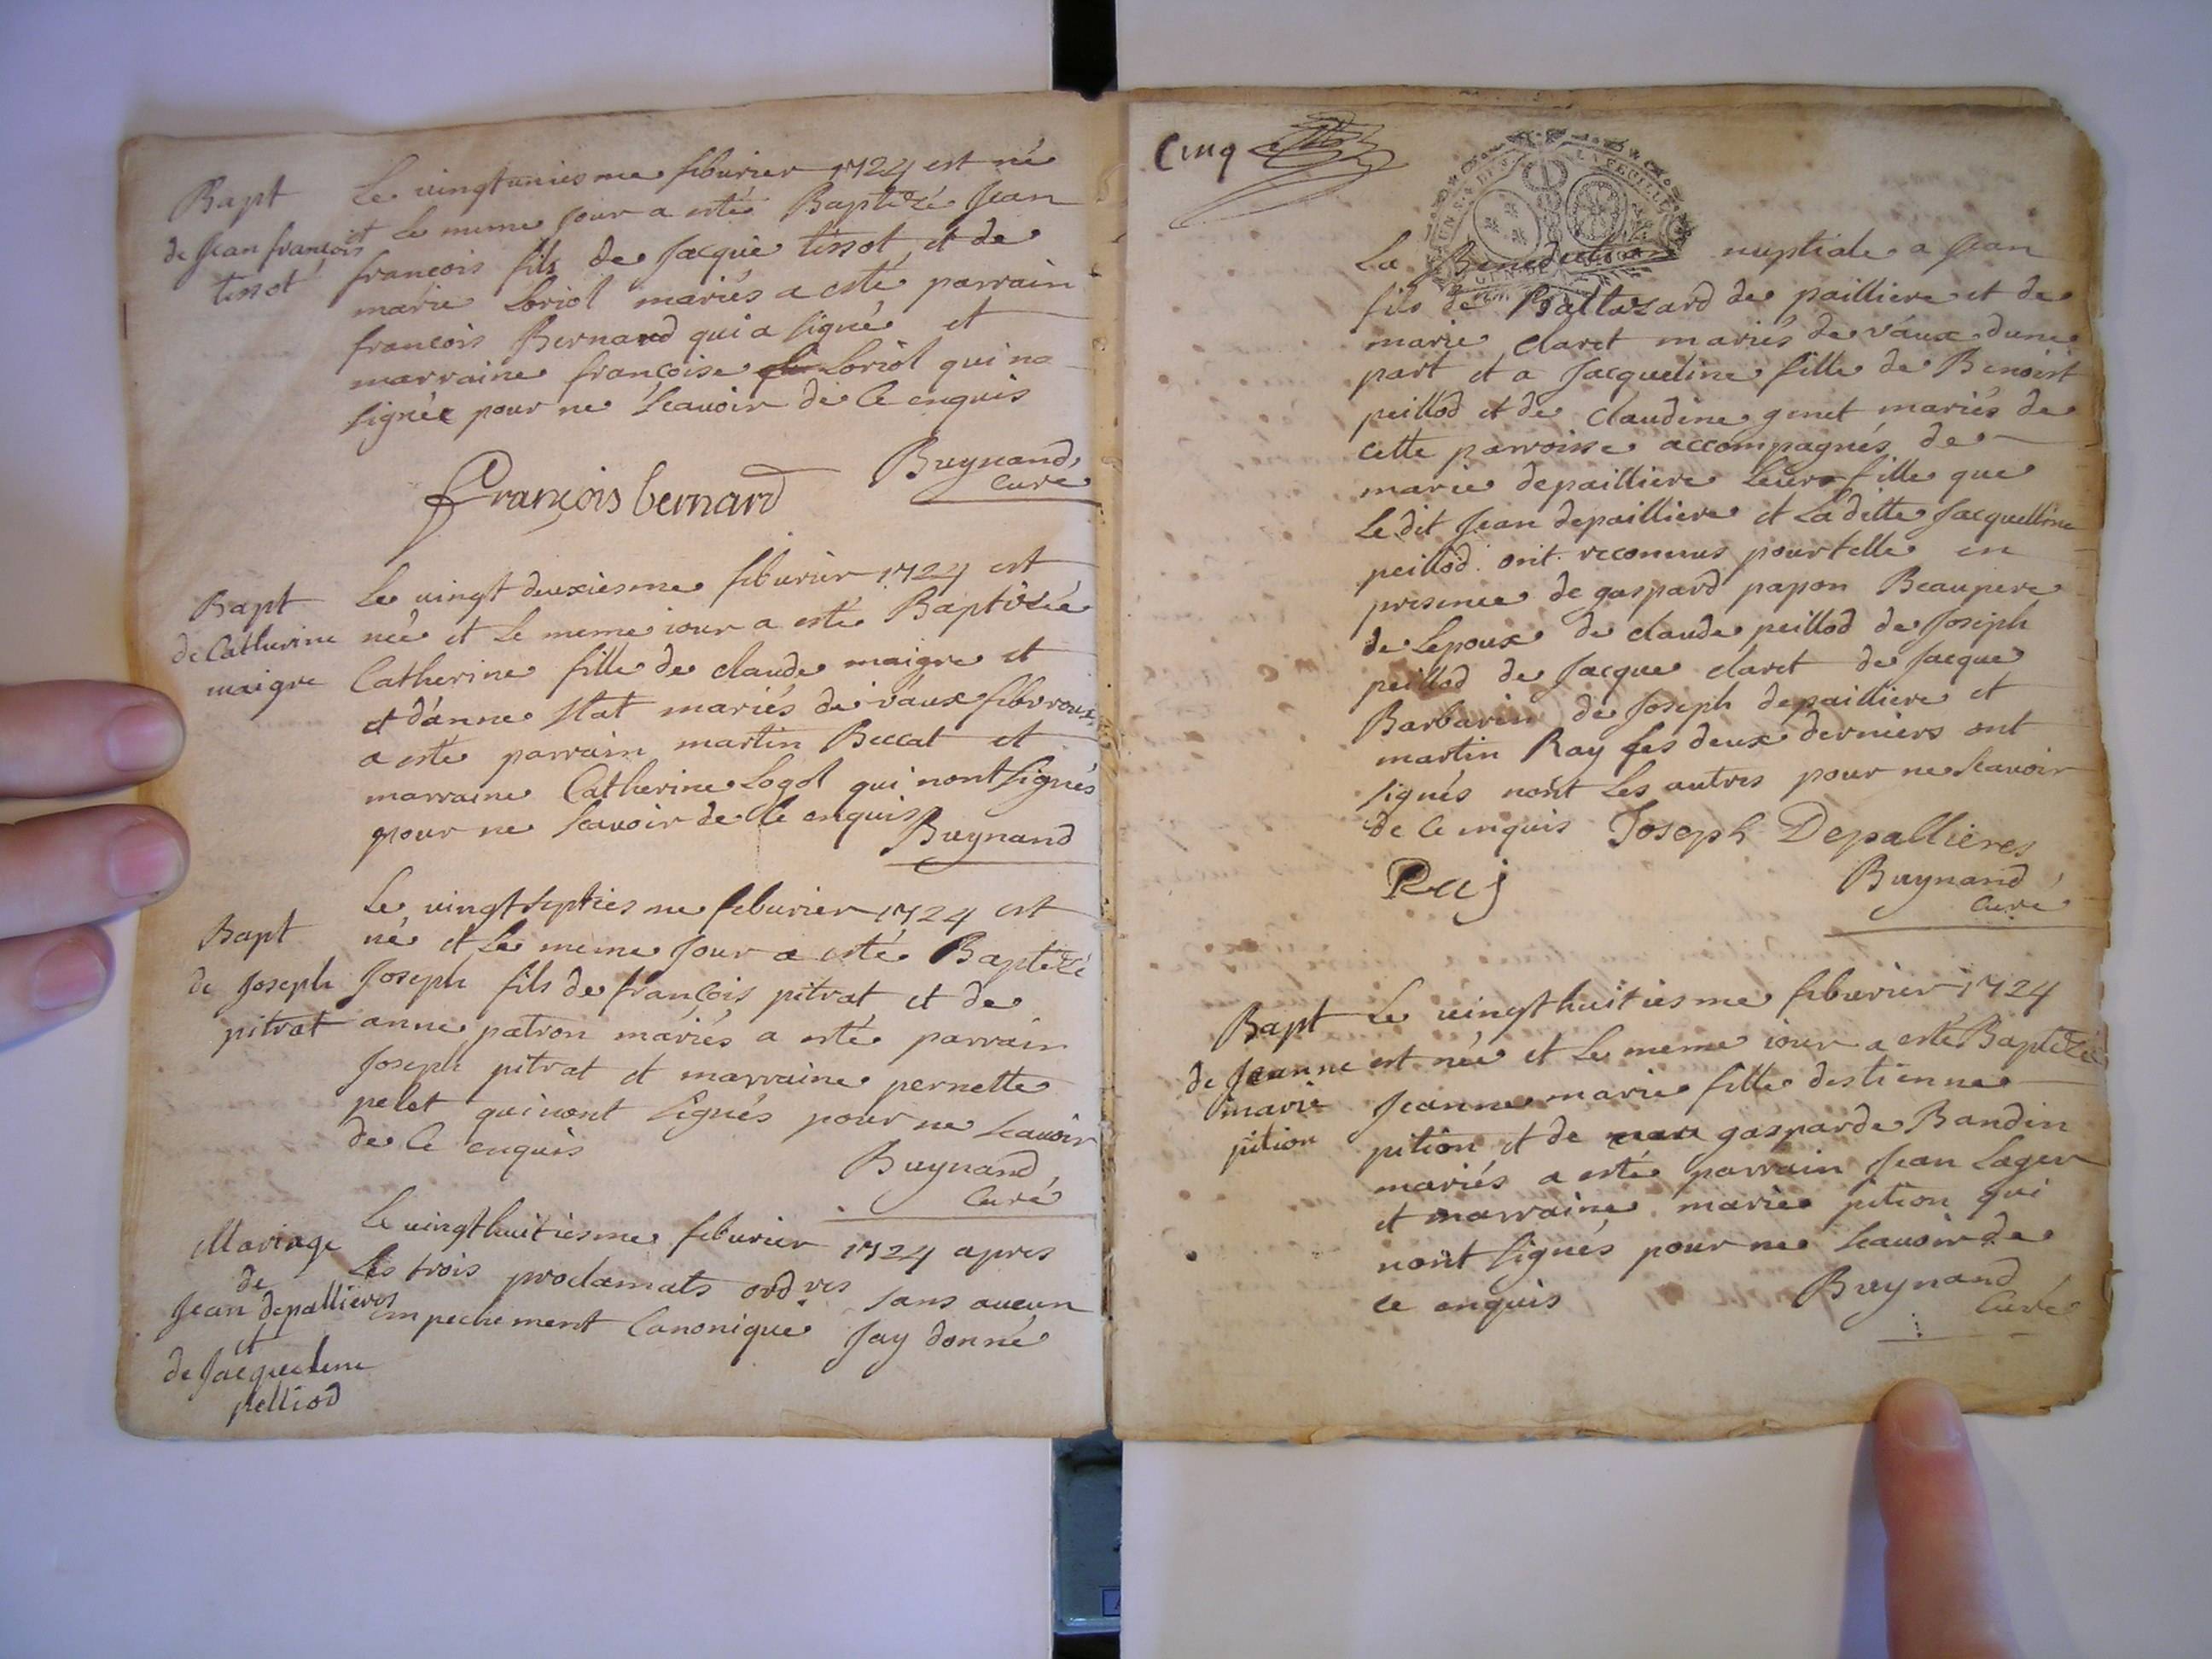 Bapt
de Jean françois
tissot
Le vingtuniesme feburier 1724 est né
et le meme jour a esté Baptizé Jean
francois fils de Jacque tissot et de
marie Loriol mariés a esté parrain
francois Bernard qui a signé et
marraine françoise Loriol qui na
signée pour ne scavoir de ce enquis
Buynand
Curé
François bernard
Bapt
de Catherine
maigre
Le vingt deuxiesme feburier 1724 est
née et le meme iour a esté Baptisée
Catherine fille de claude maigre et
et danne Stat mariés de vaux febvroux
a esté parrain martin Beccat et
marraine Catherine Logol qui nont signés
pour ne scavoir de ce enquis
Buynand
Bapt
de Joseph
pitrat
Le vingtseptiesme feburier 1724 est
né et le meme Jour a esté Baptizé
Joseph fils de françois pitrat et de
anne patron mariés a esté parrain
Joseph pitrat et marraine pernette
pelet qui nont signés pour ne scavoir
de ce enquis
Buynand
Curé
Mariage
de
Jean depallieres
et
de Jacqueline
pelliod
Le vingthuitiesme feburier 1724 apres
les trois proclamats ordres sans aucun
empechement Canonique Jay donné
Cinq
La Benediction nuptiale a Jean
fils de Baltazard de pailliere et de
marie claret mariés de vaux dune
part et a Jacqueline fille de Benoist
peillod et de claudine genet mariés de
cette parroisse accompagnés de
marie depailliere leur fille que
Le dit Jean depailliere et La ditte Jacquelline
peillod ont reconnus pour telle en
presence de gaspard papon Beaupere
de Lepoux de claude peillod de Joseph
peillod de Jacque claret de Jacque
Barbarin de Joseph depailliere et
martin Ray les deux derniers ont
signés nont les autres pour ne scavoir
de ce enquis Joseph Depallieres
Raj
Buynand
Curé
Bapt
de Jeanne
marie
pition
Le vingthuitiesme feburier 1724
est née et le meme iour a esté Baptizée
Jeanne marie fille destienne
pition et de gasparde Bandin
mariés a esté parrain Jean Lager
et marraine marie pition qui
nont signés pour ne scavoir de
ce enquis
Buynand
Curé